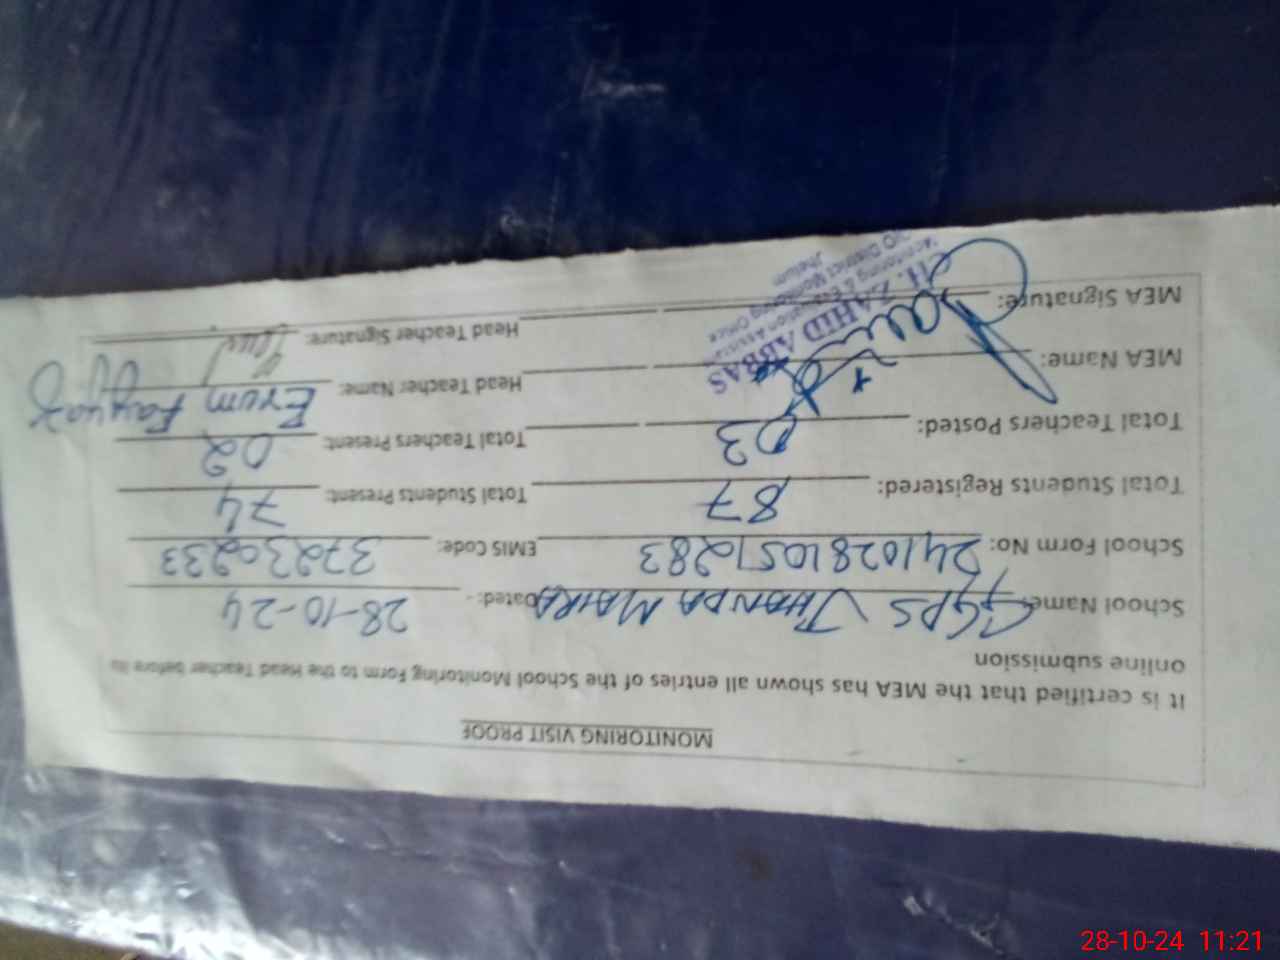 MONITORING VISIT PROOF
It is certified that the MEA has shown all entries of the School Monitoring Form to the Head Teacher before its
online submission
School Name: GGPS JHANDA MAIRA Dated:- 28-10-24
School Form No: 2410281051283 EMIS Code: 37230233
Total Students Registered: 87 Total Students Present: 74
Total Teachers Posted: 03 Total Teachers Present: 02
MEA Name: Head Teacher Name: Erum Fayyaz
MEA Signature: Head Teacher Signature:
CH. ZAHID ABBAS
Monitoring & Evaluation Assistant
O/O District Monitoring Office
Jhelum
28-10-24 11:21